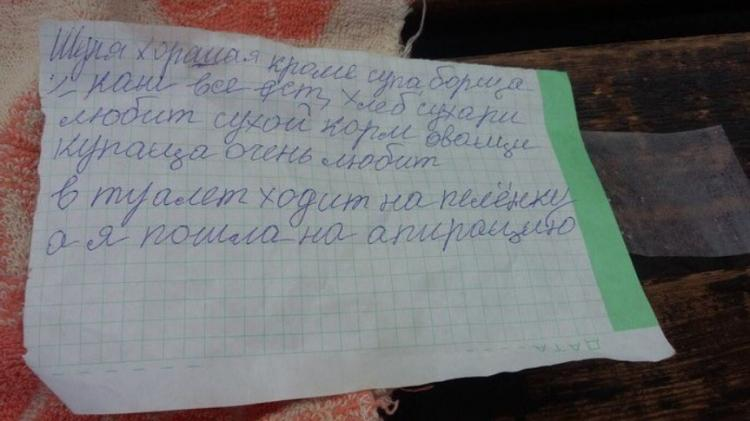 Шуля хорошая кроме супа борща
и каш все ест, хлеб сухари
любит сухой корм овощи
купаща очень любит
в туалет ходит на пелёнку
а я пошла на апирацию
ДАТА